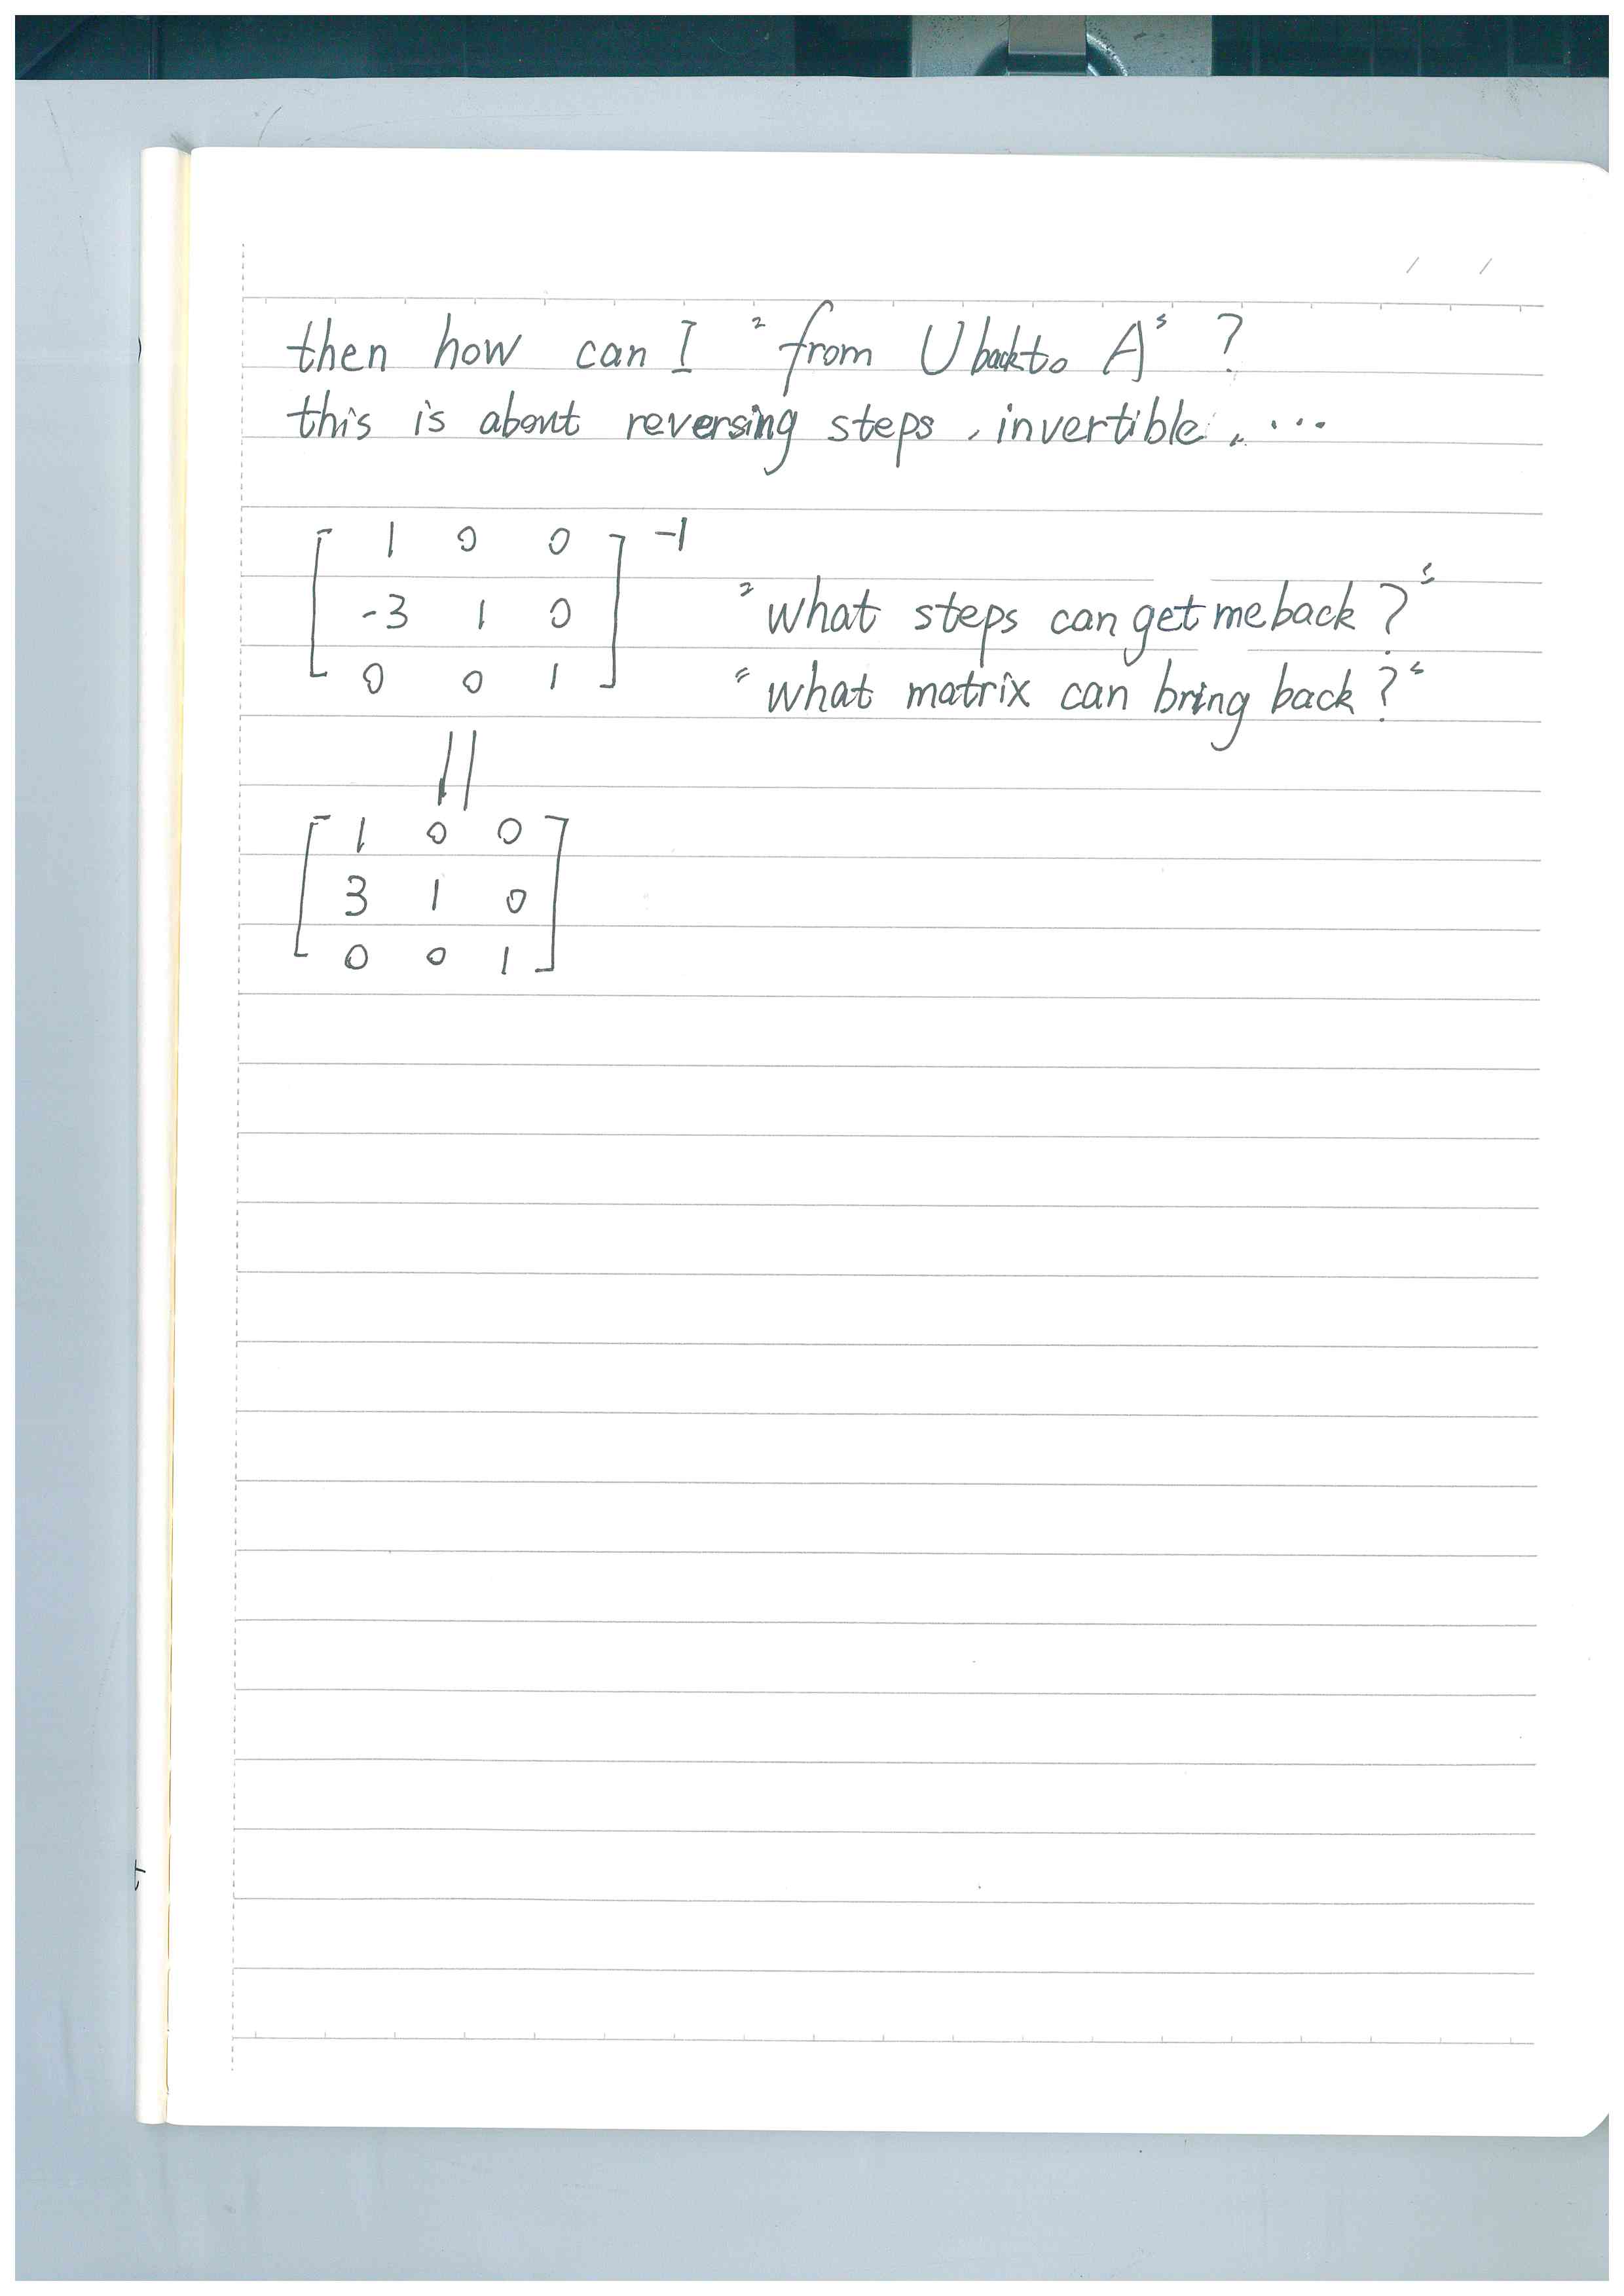 then how can I "from U back to A" ?
this is about reversing steps, invertible, ...
[ 1 0 0 ] -1
-3 1 0
0 0 1
"what steps can get me back?"
"what matrix can bring back?"
||
1 0 0
3 1 0
0 0 1